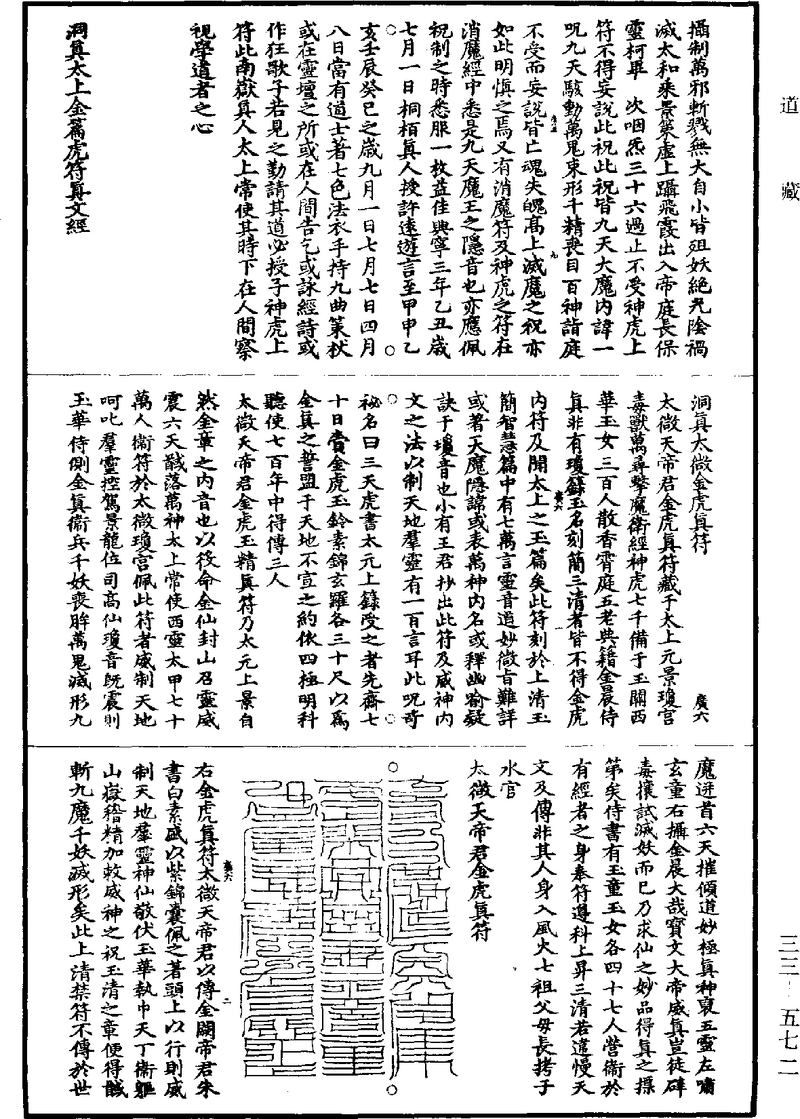 道藏
攝制萬邪斬戮無大自小皆殂妖絕炁陰禍
滅太和乘景策虛上躡飛霞出入帝庭長保
靈柯畢次咽炁三十六過止不受神虎上
符不得妄說此祝此祝皆九天大魔內諱一
呪九天駭動萬鬼束形千精喪目百神詣庭
不受而妄說皆亡魂失魄高上滅魔之祝亦
如此明慎之焉又有消魔符及神虎之符在
消魔經中悉是九天魔王之隱音也亦應佩
祝制之時悉服一枚益佳興寧三年乙丑歲
七月一日桐栢真人授許遠遊言至甲申乙
亥壬辰癸巳之歲九月一日七月七日四月
八日當有道士著七色法衣手持九曲策杖
或在靈壇之所或在人間告乞或詠經詩或
作狂歌子若見之勤請其道必授子神虎上
符此南嶽真人太上常使其時下在人間察
視學道者之心
洞真太上金篇虎符真文經
洞真太微金虎真符
廣六
太微天帝君金虎真符藏于太上元景瓊宮
毒獸萬尋擊魔衛經神虎七千備于玉闕西
華玉女三百人散香霄庭五老典籍金晨侍
真非有瓊錄玉名刻簡三清者皆不得金虎
內符及開太上之玉篇矣此符刻於上清玉
簡智慧篇中有七萬言靈音道妙微旨難詳
或著天魔隱諱或表萬神內名或釋幽喻疑
訣于瓊音也小有王君抄出此符及威神內
文之法以制天地羣靈有一百言耳此呪奇
祕名曰三天虎書太元上籙受之者先齋七
十日賫金虎玉鈴素錦玄羅各三十尺以爲
金真之誓盟于天地不宣之約依四極明科
聽使七百年中得傳三人
太微天帝君金虎玉精真符乃太元上景自
然金章之內音也以役命金仙封山召靈威
震六天馘落萬神太上常使西靈太甲七十
萬人衛符於太微瓊宮佩此符者威制天地
呵叱羣靈控駕景龍位司高仙瓊音既震則
玉華侍側金真衛兵千妖喪眸萬鬼滅形九
魔迸首六天摧傾道妙極真神裒五靈左嘯
玄童右攝金晨大哉寶文大帝威真豈徒碎
毒攘試滅妖而已乃求仙之妙品得真之標
第矣侍書有玉童玉女各四十七人營衛於
有經者之身奉符遵科上昇三清若違慢天
文及傳非其人身入風火七祖父母長拷于
水官
太微天帝君金虎真符
右金虎真符太微天帝君以傳金闕帝君朱
書白素盛以紫錦囊佩之著頭上以行則威
制天地羣靈神仙敬伏玉華執巾天丁衛軀
山嶽稽精加敕威神之祝玉清之章便得馘
斬九魔千妖滅形矣此上清禁符不傳於世
三三–五七二